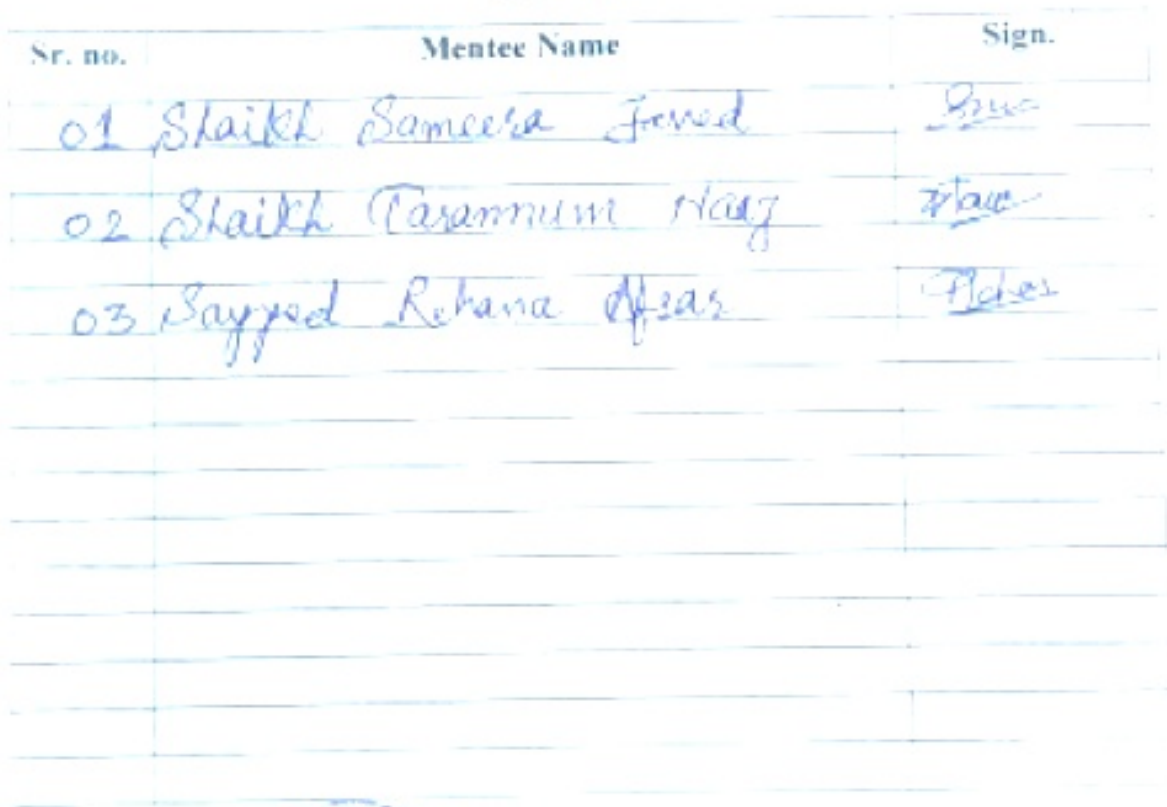 Sr. no. Mentee Name Sign.
01 Shaikh Sameera Javed
02 Shaikh Tarannum Naaz
03 Sayyed Rehana Afsar